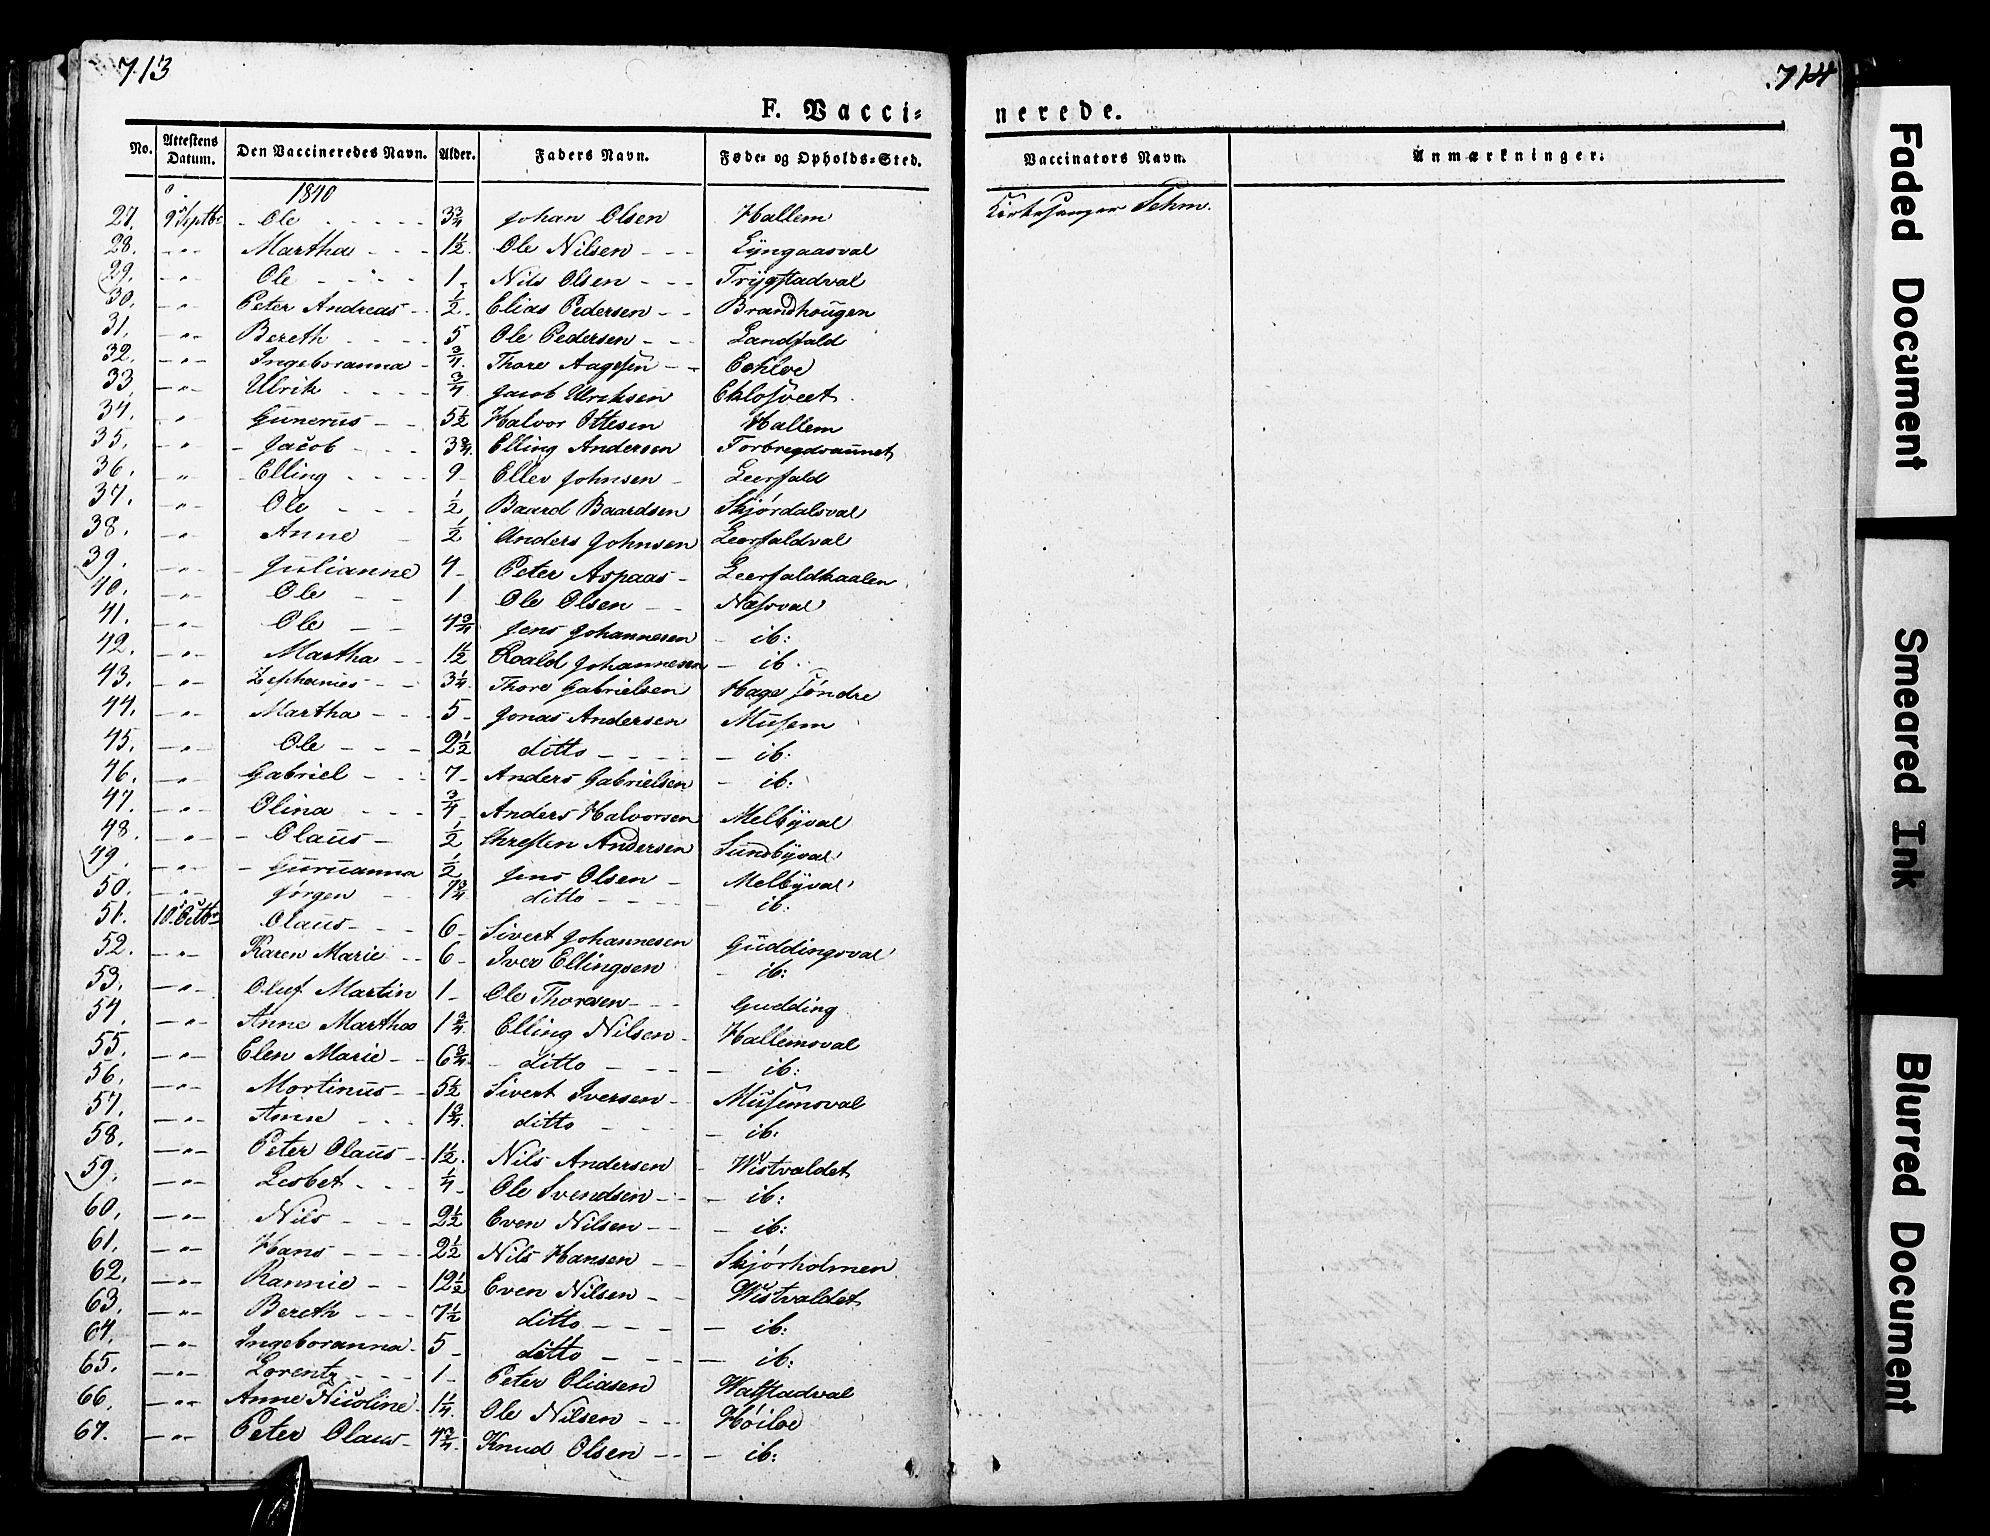 713
714
F. Vacci=
nerede.
No. Attestens Datum. Den Vaccineredes Navn. Alder. Faders Navn. Føde= og Opholds=Sted. Vaccinators Navn. Anmærkninger.
1840
27. 9 Septbr Ole 3¾ Johan Olsen Hallem Kirkesanger Sehm.
28. -"- Martha 1½ Ole Nilsen Lÿngaasval
29. -"- Ole 1 Nils Olsen Trÿgstadval
30. -"- Peter Andreas ½ Elias Pedersen Brandhougen
31. -"- Bereth 5 Ole Pedersen Landfald
32. -"- Ingeboranna ¾ Thore Aagesen
33. -"- Ulrik ¾ Jacob Ulriksen
34. " Gunerus 5½ Halvor Ottesen Hallem
35. " Jacob 3¾ Elling Andersen Forbregdsaunet
36. " Elling 9 Ellev Johnsen Leerfald
37. " Ole ½ Baard Baardsen Skjørdalsval
38. " Anne ½ Anders Johnsen Leerfaldval
39. " Julianne 4 Peter Aspaas Leerfaldhaalen
40. -"- Ole 1 Ole Olsen Næsval
41. " Ole 4¾ Jens Johannesen ib:
42. " Martha 1½ Roald Johannesen ib.
43. " Zephanies 3¼ Thore Gabrielsen Hage søndre
44. -"- Martha 5 Jonas Andersen Musem
45. -"- Ole 2½ ditto ib:
46. -"- Gabriel 7 Anders Gabrielsen ib:
47. -"- Olina ¾ Anders Halvorsen Melbÿval
48. -"- Olaus ½ Chresten Andersen Sundbÿval
49. -"- Guruanna ½ Jens Olsen Melbÿval
50. -"- Jørgen 7¾ ditto ib:
51. 10 Octbr Olaus 6 Sivert Johannesen Guddingsval
52. -"- Karen Marie 6 Iver Ellingsen ib:
53. -"- Oluf Martin 1 Ole Thoresen Gudding
54. -"- Anne Martha 1¾ Elling Nilsen Hallemsval
55. -"- Elen Marie 6¾ ditto ib:
56. -"- Mortinus 5½ Sivert Iversen Musemsval
57. -"- Anne 1¾ ditto ib:
58. -"- Peter Olaus 1½ Nils Andersen Wistvaldet
59. -"- Lesbet ¼ Ole Svendsen ib:
60. -"- Nils 2½ Even Nilsen ib:
61. -"- Hans 2½ Nils Hansen Skjørholmen
62. -"- Rannie 12½ Even Nilsen Wistvaldet
63. -"- Bereth 7½ ditto ib:
64. -"- Ingeboranna 5 ditto ib:
65. -"- Lorentz 1 Peter Oliasen Walstadval
66. -"- Anne Nicoline 1¼ Ole Nilsen Høilve
67. -"- Peter Olaus 4¾ Knud Olsen ib:
Faded Document
Smeared Ink
Blurred Document